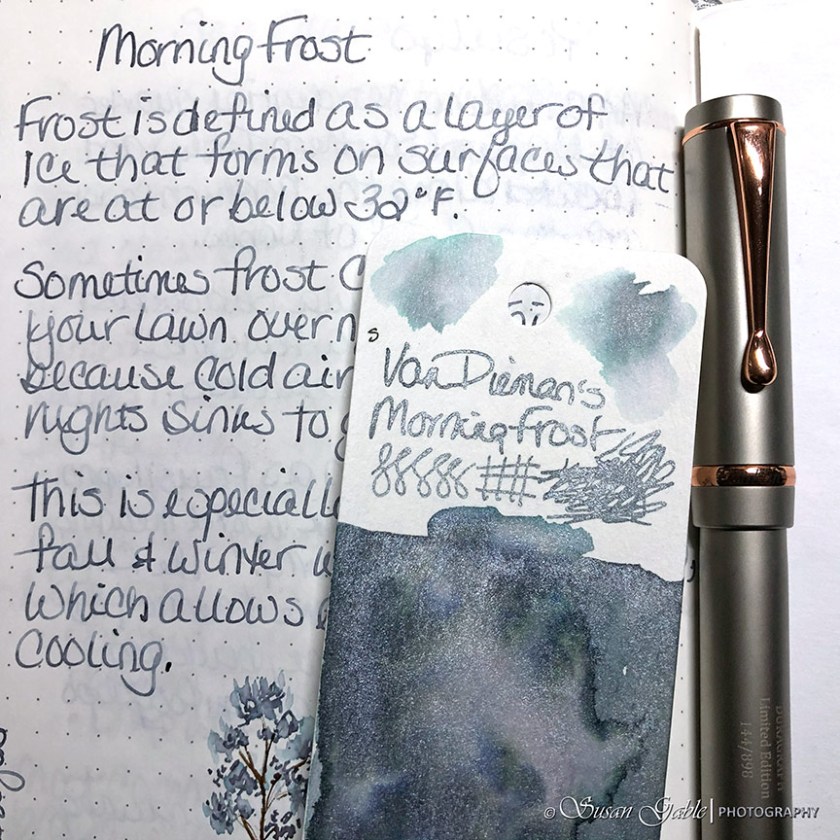 Morning Frost
Frost is defined as a layer of
ice that forms on surfaces that
are at or below 32°F.
Sometimes frost
your lawn overn
because cold air
nights sinks to
This is especiall
fall & winter
which allows
cooling.
Van Dieman's
Morning Frost
Limited Edition
144/898
© Susan Gable | PHOTOGRAPHY